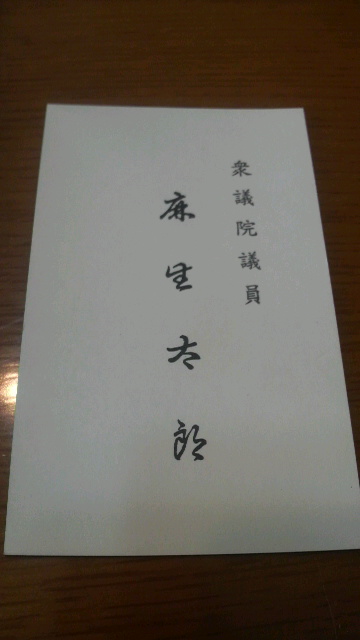 衆議院議員
麻生太郎